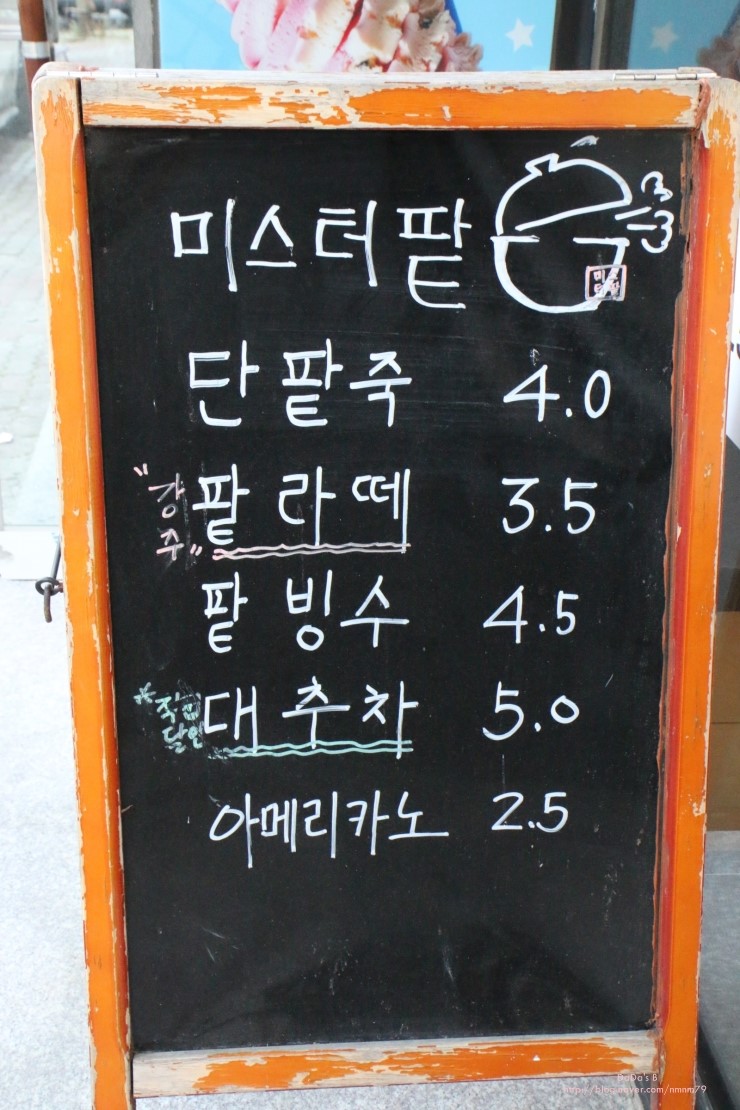 미스터팥
미스터팥
단팥죽 4.0
"강추" 팥라떼 3.5
팥빙수 4.5
*직접달인 대추차 5.0
아메리카노 2.5
DaDa's B
https://blog.naver.com/nmnm79